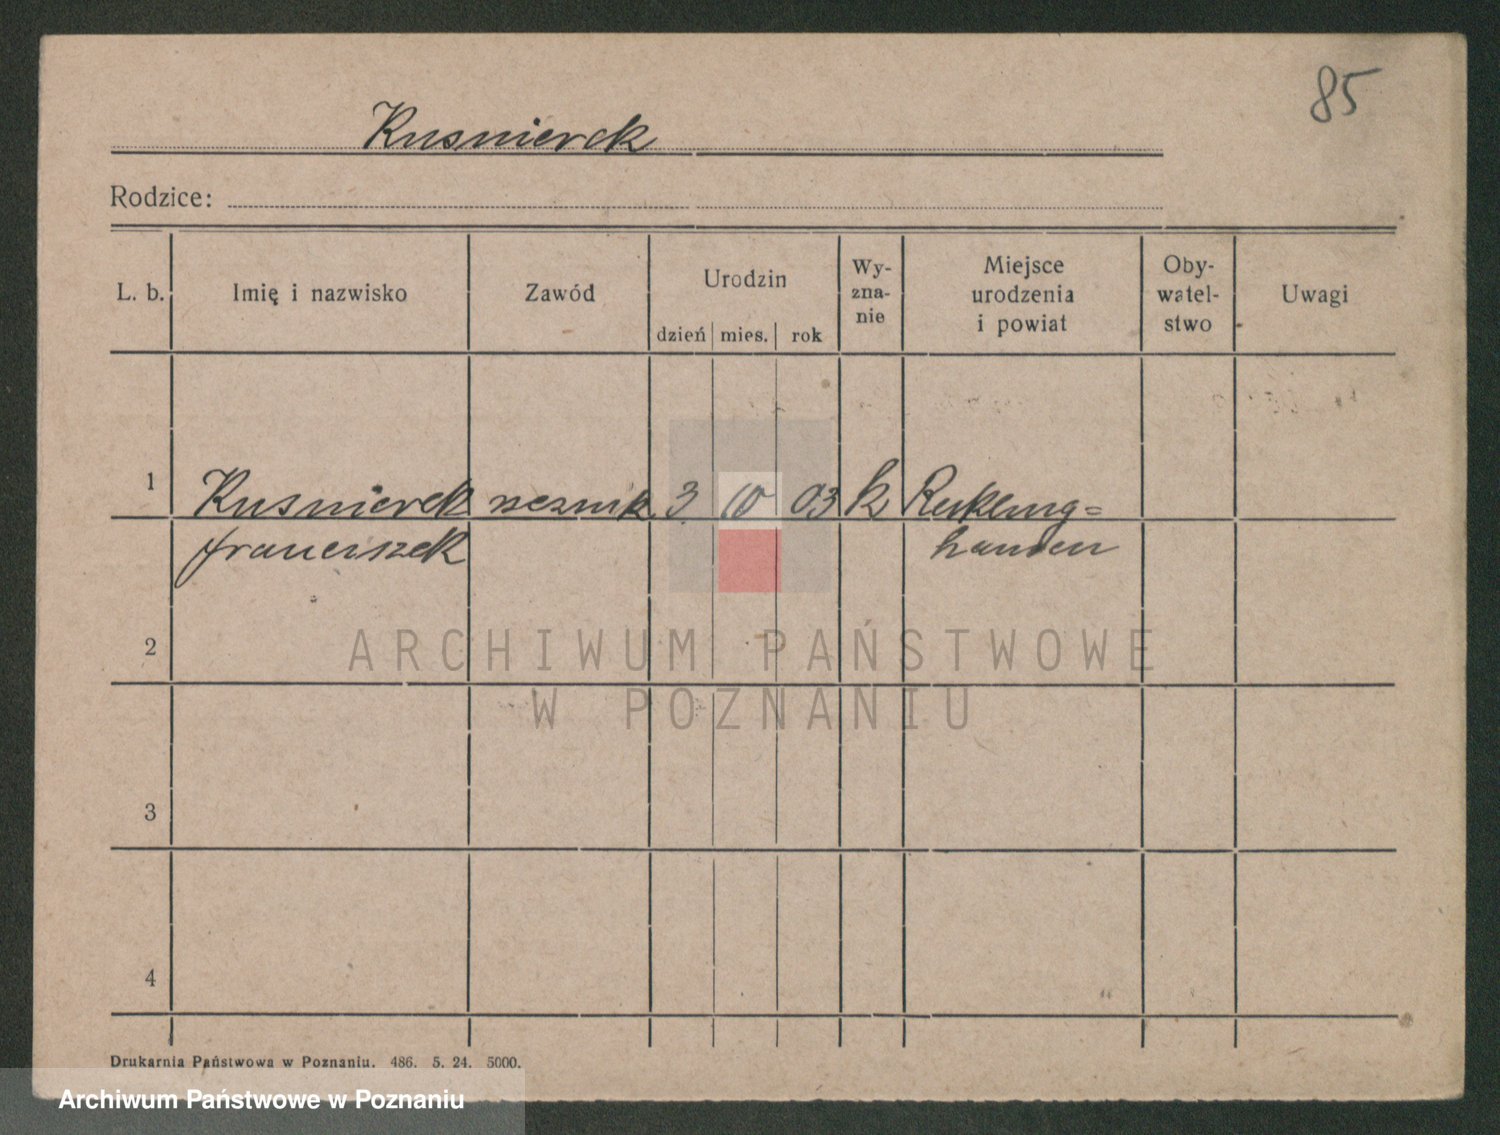 85
Kusnierek
Rodzice:
L. b. Imię i nazwisko Zawód Urodzin dzień mies. rok Wy-zna-nie Miejsce urodzenia i powiat Oby-watel-stwo Uwagi
1 Kusnierek rzeznik 3 10 03 k Rekling=
Franciszek hausen
2
ARCHIWUM PAŃSTWOWE
W POZNANIU
3
4
Drukarnia Państwowa w Poznaniu. 486. 5. 24. 5000.
Archiwum Państwowe w Poznaniu